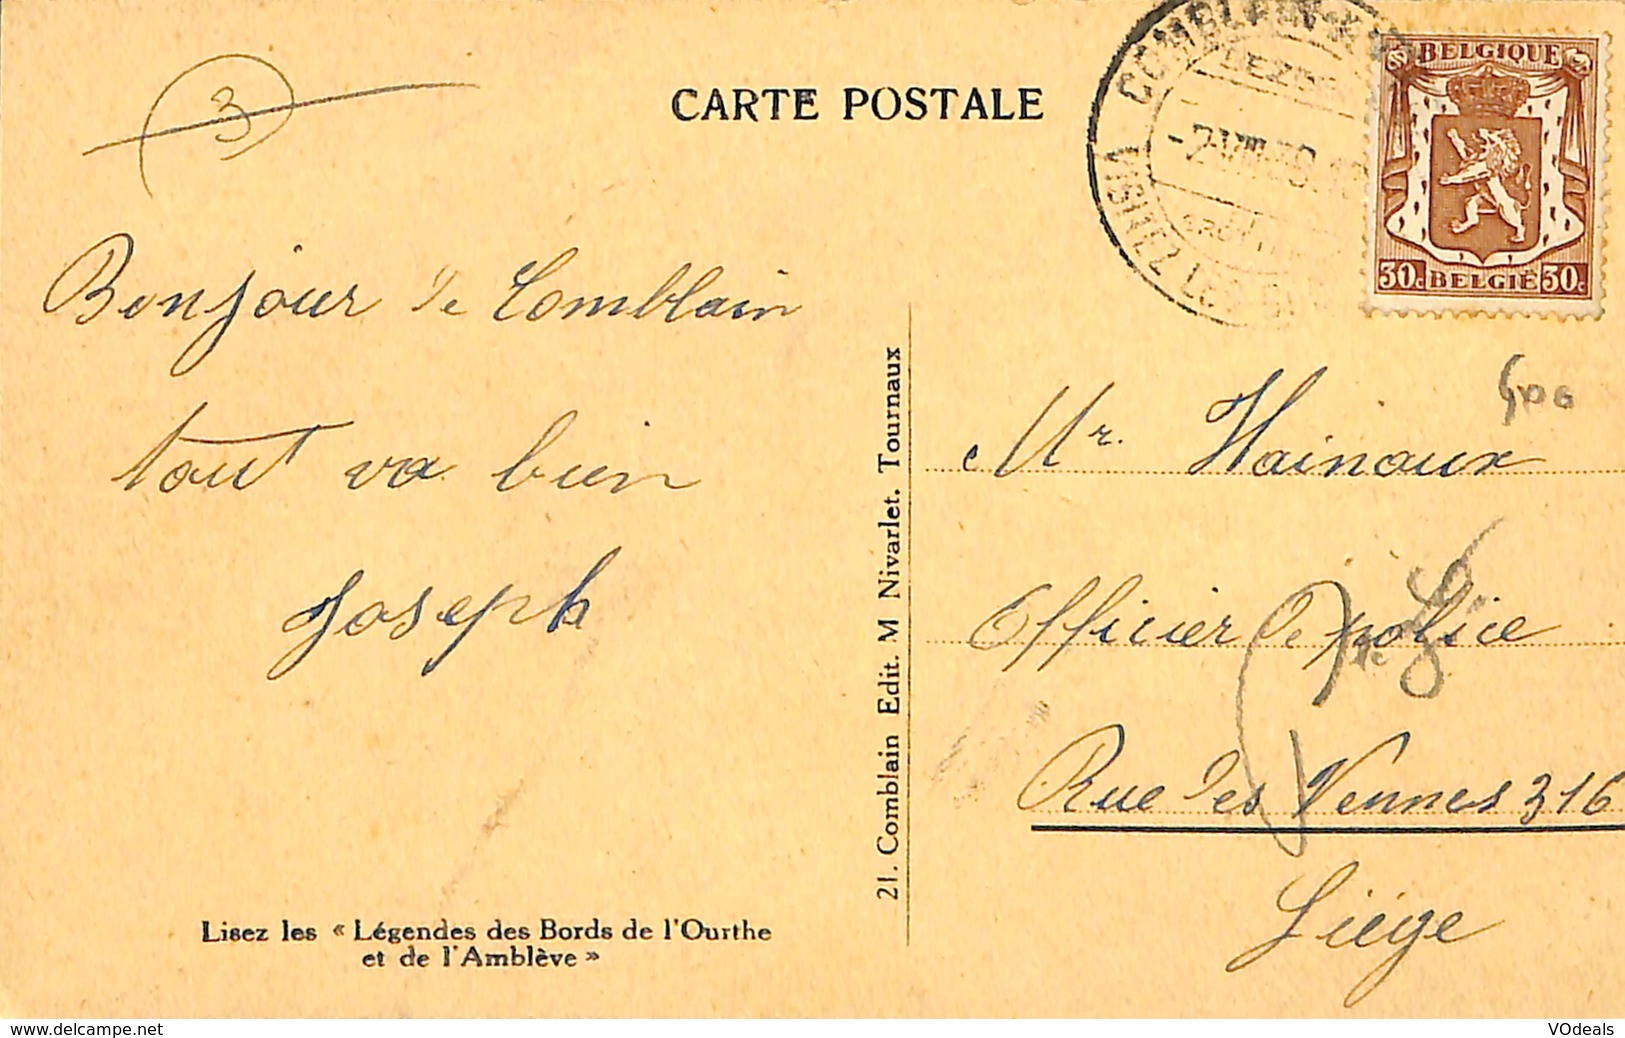 3
CARTE POSTALE
BELGIQUE
30c BELGIË 30c
-2.VIII.39.18
VISITEZ LES
Bonjour de Comblain
tout va bien
Joseph
Lisez les « Légendes des Bords de l'Ourthe
et de l'Amblève »
21. Comblain Edit. M Nivarlet. Tournaux
Mr. Hainaux
Officier de police
Rue des Vennes 316
Liége
www.delcampe.net
VOdeals